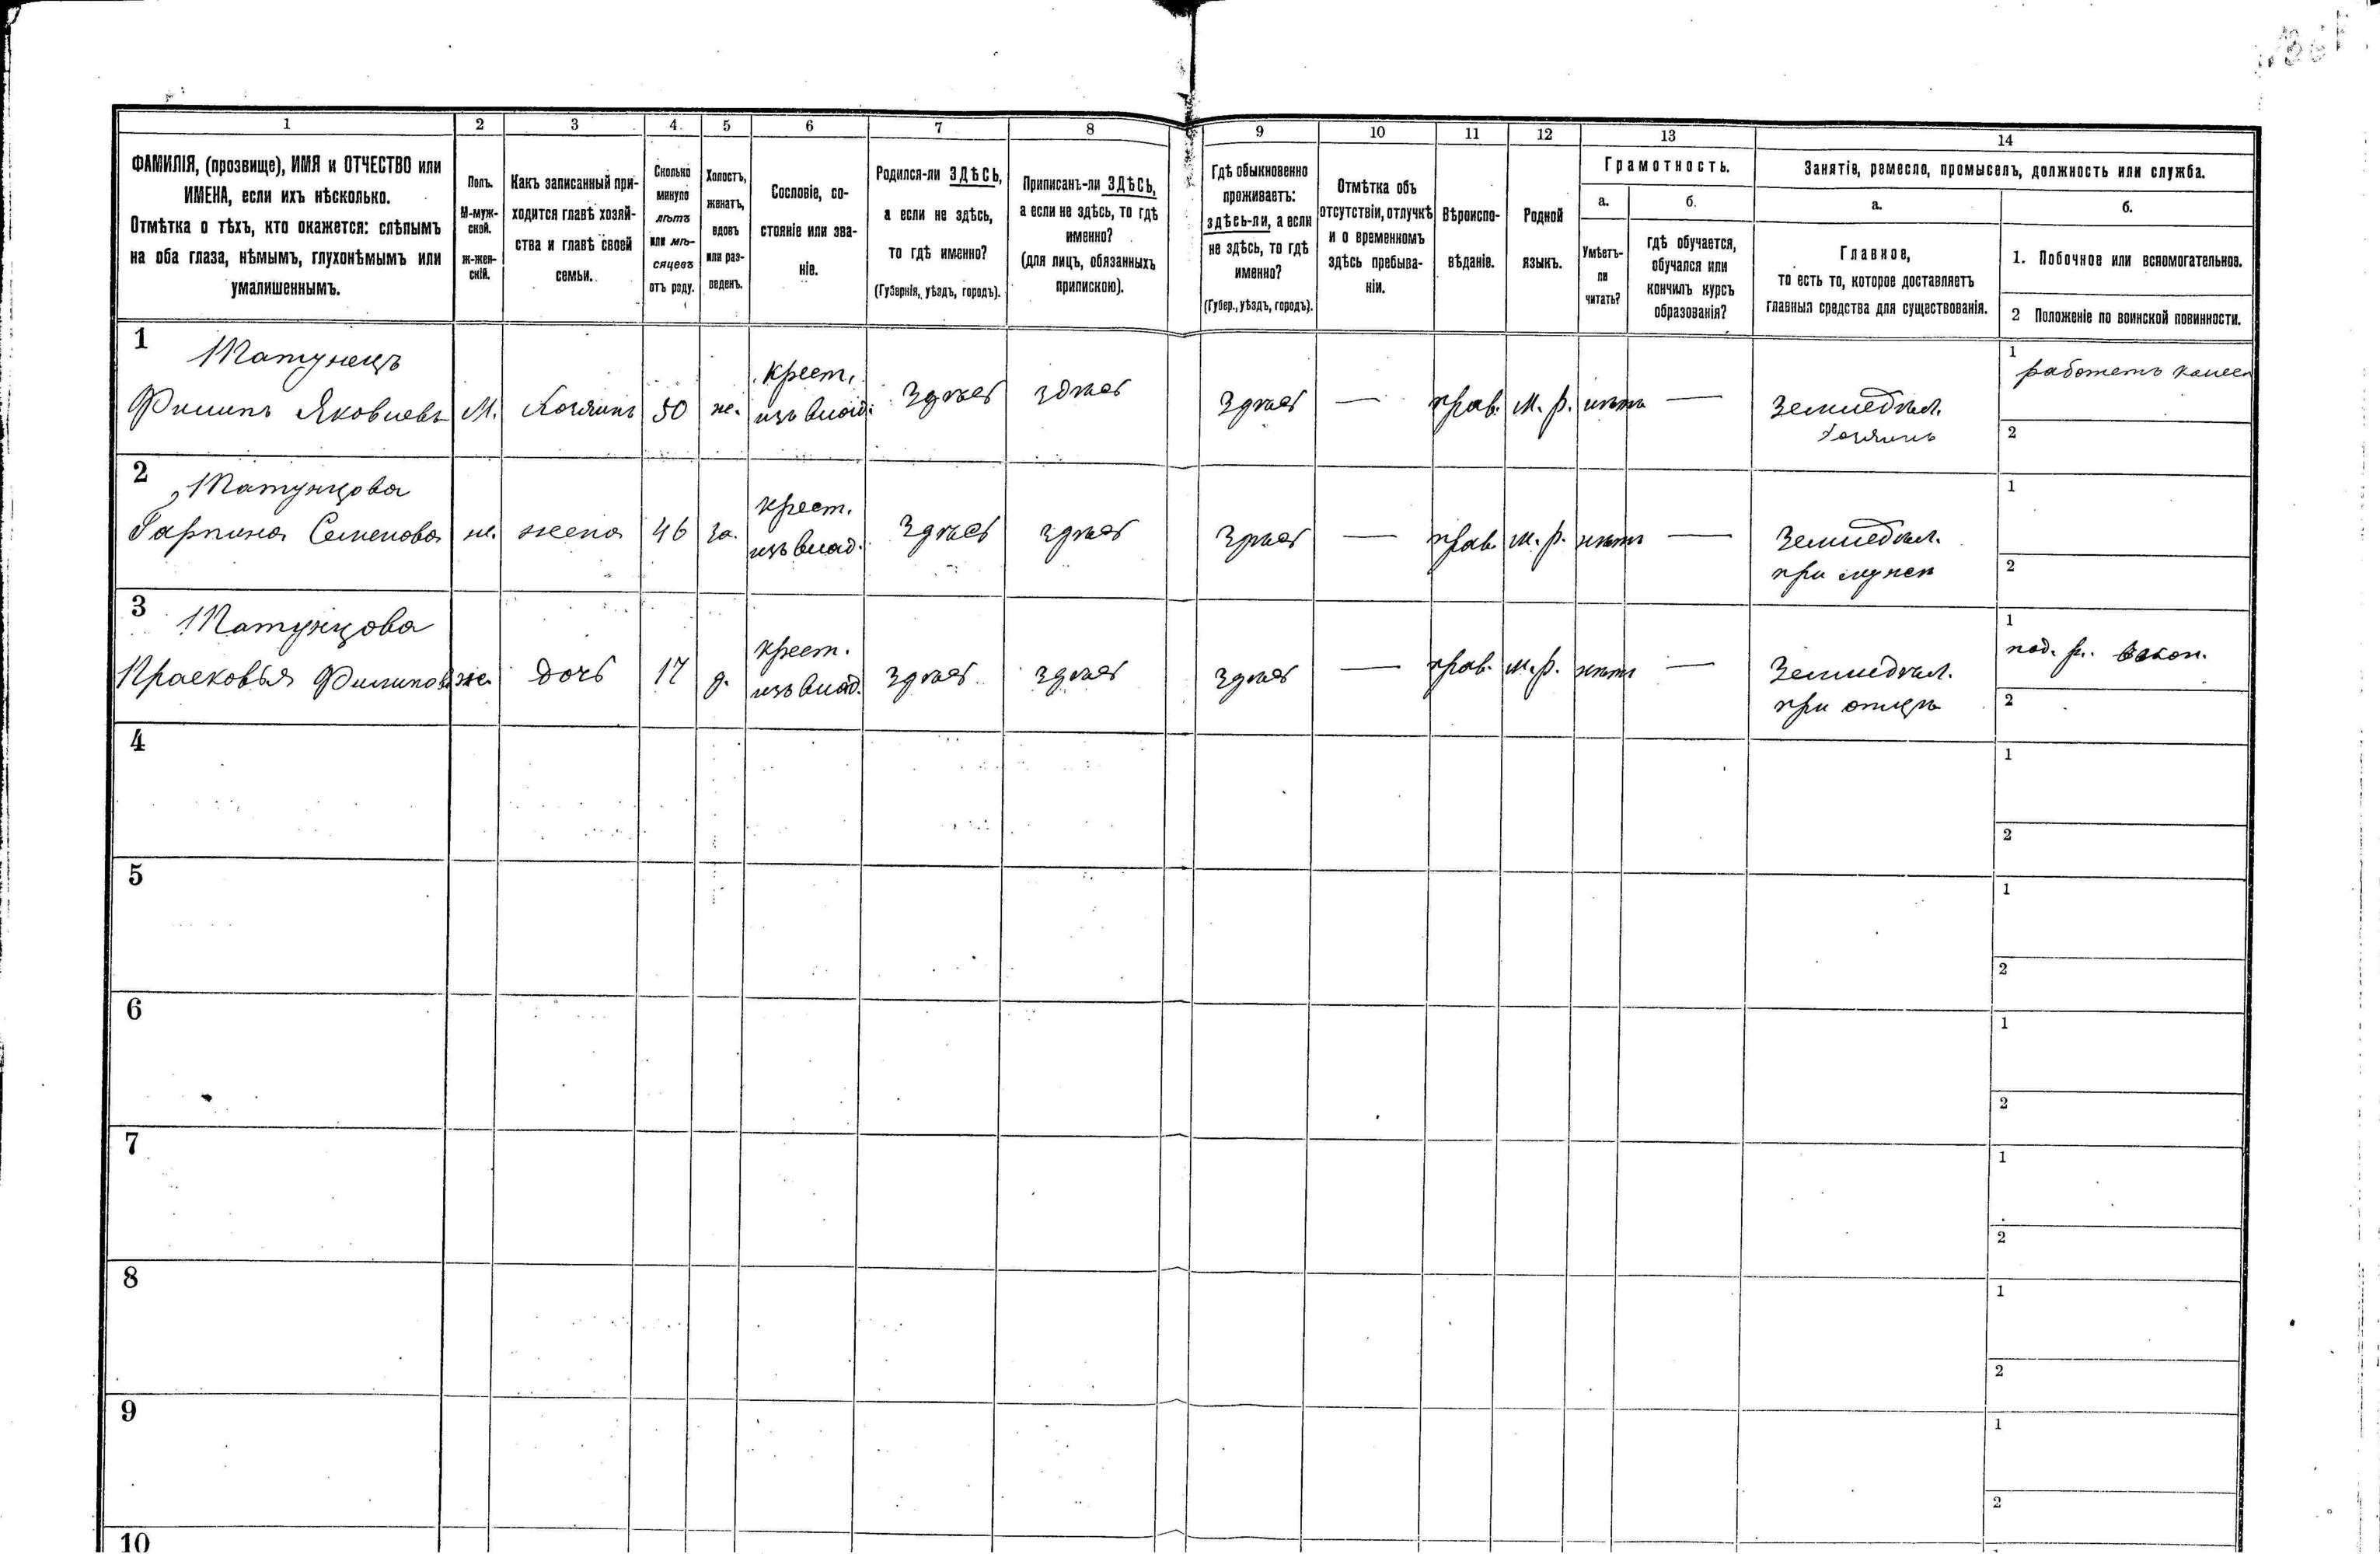 1 2 3 4 5 6 7 8 9 10 11 12 13 14
ФАМИЛІЯ, (прозвище), ИМЯ и ОТЧЕСТВО или
ИМЕНА, если ихъ нѣсколько.
Отмѣтка о тѣхъ, кто окажется: слѣпымъ
на оба глаза, нѣмымъ, глухонѣмымъ или
умалишеннымъ.
Полъ.
М-муж-
ской.
ж-жен-
скій.
Какъ записанный при-
ходится главѣ хозяй-
ства и главѣ своей
семьи.
Сколько
минуло
лѣтъ
или мѣ-
сяцевъ
отъ роду.
Холостъ,
женатъ,
вдовъ
или раз-
веденъ.
Сословіе, со-
стояніе или зва-
ніе.
Родился-ли ЗДѢСЬ,
а если не здѣсь,
то гдѣ именно?
(Губернія, уѣздъ, городъ).
Приписанъ-ли ЗДѢСЬ,
а если не здѣсь, то гдѣ
именно?
(для лицъ, обязанныхъ
припискою).
Гдѣ обыкновенно
проживаетъ:
здѣсь-ли, а если
не здѣсь, то гдѣ
именно?
(Губер., уѣздъ, городъ).
Отмѣтка объ
отсутствіи, отлучкѣ
и о временномъ
здѣсь пребыва-
ніи.
Вѣроиспо-
вѣданіе.
Родной
языкъ.
Грамотность.
а.
Умѣетъ-
ли
читать?
б.
гдѣ обучается,
обучался или
кончилъ курсъ
образованія?
Занятіе, ремесло, промыселъ, должность или служба.
а.
Главное,
то есть то, которое доставляетъ
главныя средства для существованія.
б.
1. Побочное или вспомогательное.
2 Положеніе по воинской повинности.
1
Матунецъ
Филипъ Яковлевъ
М.
Хозяинъ
50
же.
крест.
изъ влад.
Здѣсь
здѣсь
Здѣсь
—
прав.
м. р.
нѣтъ
—
Земледѣл.
Хозяинъ
1
работетъ
2
2
Матунцова
Гарпина Семенова
ж.
жена
46
за.
крест.
изъ влад.
Здѣсь
здѣсь
Здѣсь
—
прав.
м. р.
нѣтъ
—
Земледѣл.
при мужѣ
1
2
3
Матунцова
Прасковья Филипов
же.
дочь
17
д.
крест.
изъ влад.
здѣсь
здѣсь
здѣсь
—
прав.
м. р.
нѣтъ
—
Земледѣл.
при отцѣ
1
2
4
1
2
5
1
2
6
1
2
7
1
2
8
1
2
9
1
2
10